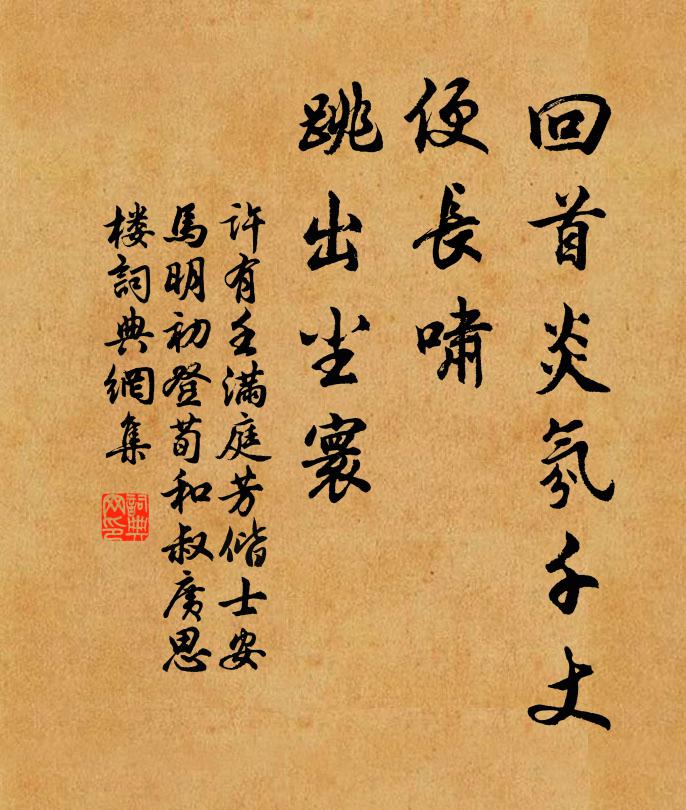 回首炎氛千丈
便長嘯
跳出尘寰
许有壬满庭芳偕士安
馬明初登荀和叔廣思
楼詞典網集
詞典網印